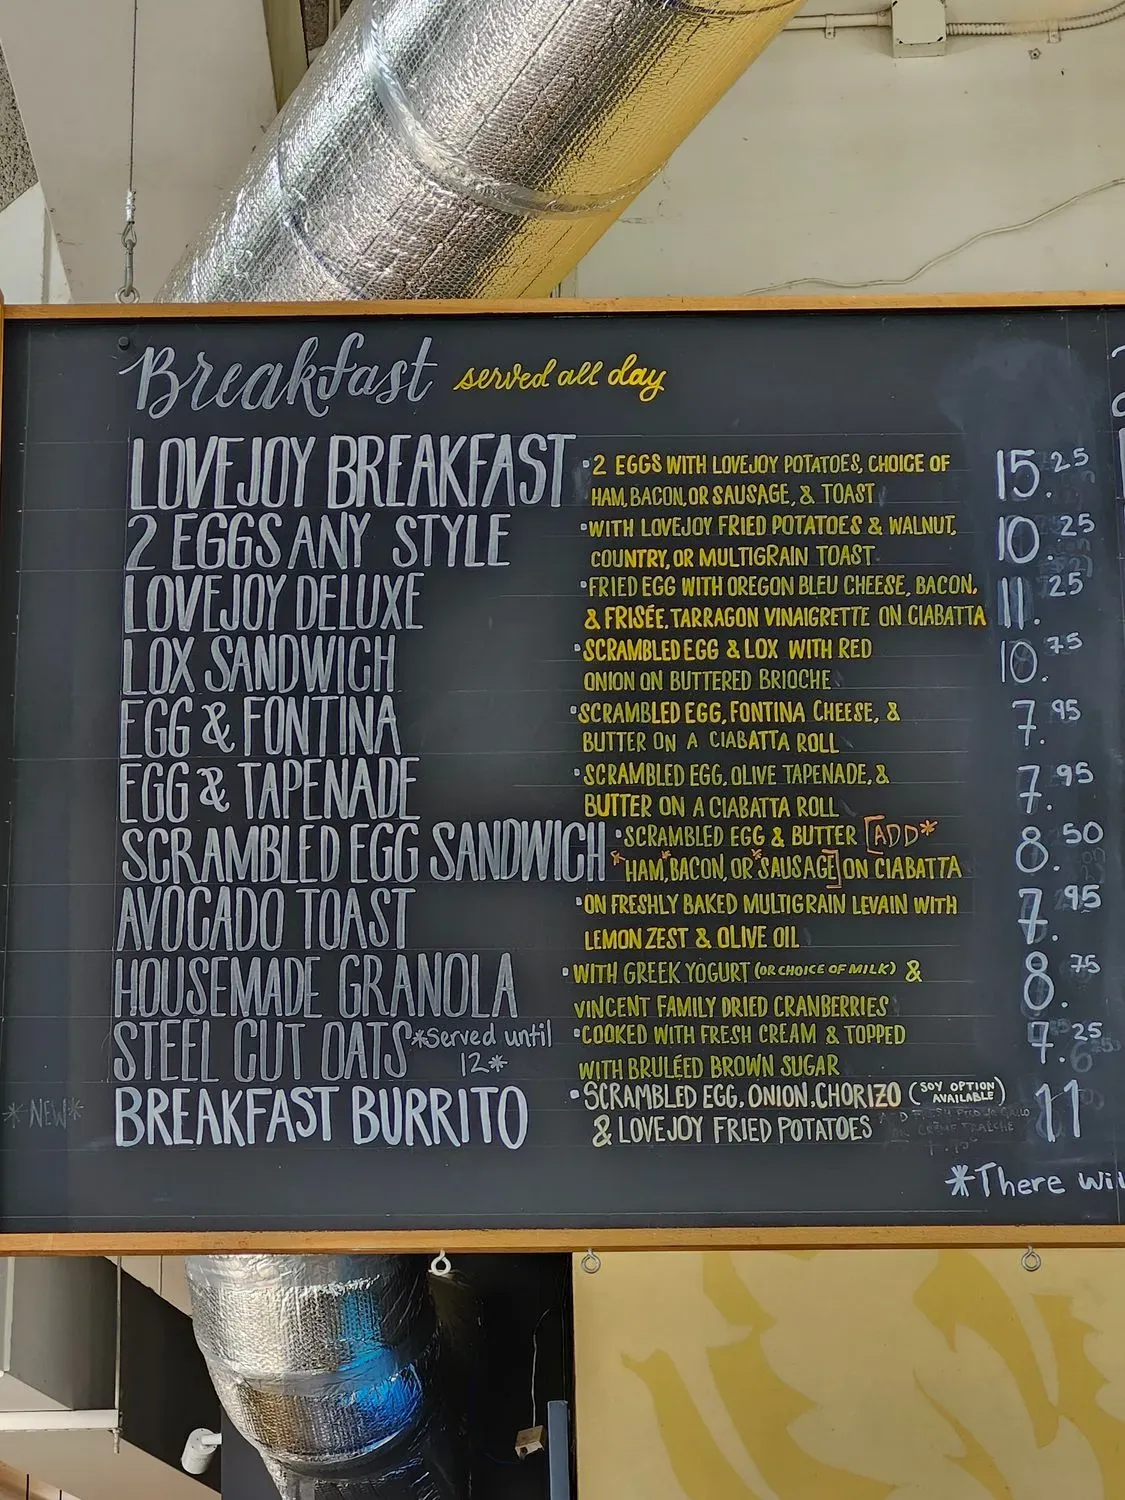 Breakfast served all day
LOVEJOY BREAKFAST •2 EGGS WITH LOVEJOY POTATOES, CHOICE OF 15.25
HAM, BACON, OR SAUSAGE, & TOAST
2 EGGS ANY STYLE •WITH LOVEJOY FRIED POTATOES & WALNUT, 10.25
COUNTRY, OR MULTIGRAIN TOAST
LOVEJOY DELUXE •FRIED EGG WITH OREGON BLEU CHEESE, BACON, 11.25
& FRISÉE, TARRAGON VINAIGRETTE ON CIABATTA
LOX SANDWICH •SCRAMBLED EGG & LOX WITH RED 10.75
ONION ON BUTTERED BRIOCHE
EGG & FONTINA •SCRAMBLED EGG, FONTINA CHEESE, & 7.95
BUTTER ON A CIABATTA ROLL
EGG & TAPENADE •SCRAMBLED EGG, OLIVE TAPENADE, & 7.95
BUTTER ON A CIABATTA ROLL
SCRAMBLED EGG SANDWICH •SCRAMBLED EGG & BUTTER [ADD* 8.50
*HAM,*BACON, OR *SAUSAGE] ON CIABATTA
AVOCADO TOAST •ON FRESHLY BAKED MULTIGRAIN LEVAIN WITH 7.95
LEMON ZEST & OLIVE OIL
HOUSEMADE GRANOLA •WITH GREEK YOGURT (OR CHOICE OF MILK) & 8.75
VINCENT FAMILY DRIED CRANBERRIES
STEEL CUT OATS *Served until 12* •COOKED WITH FRESH CREAM & TOPPED 7.25
WITH BRULÉED BROWN SUGAR
*NEW* BREAKFAST BURRITO •SCRAMBLED EGG, ONION, CHORIZO (SOY OPTION AVAILABLE) 11
& LOVEJOY FRIED POTATOES
*There